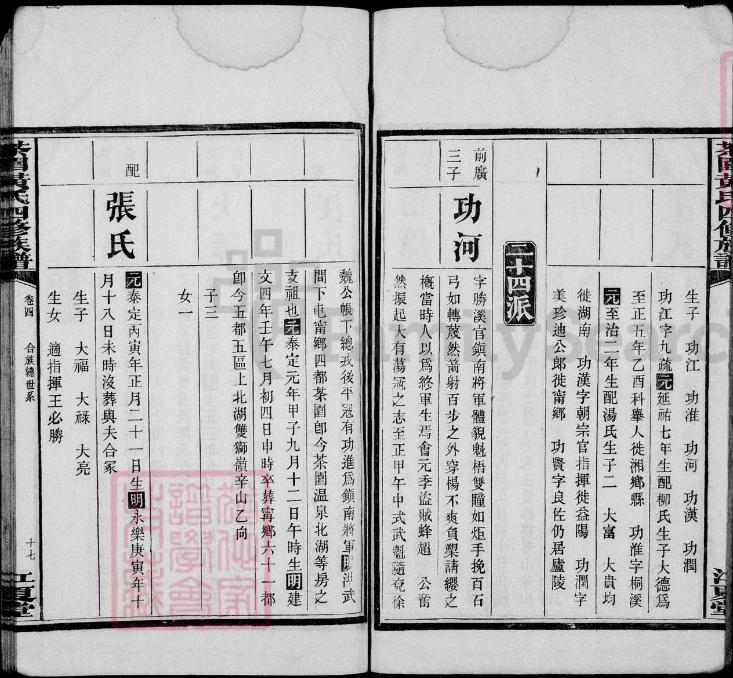 茶園黃氏四修族譜
江夏堂
生子 功江 功淮 功河 功漢 功潤
功江字九疏元延祐七年生配柳氏生子大德爲
至正五年乙酉科舉人徙湘鄉縣 功淮字桐溪
元至治二年生配湯氏生子二 大富 大貴均
徙湖南 功漢字朝宗官指揮徙益陽 功潤字
美珍迪公郎徙甯鄉 功賢字良佐仍居廬陵
二十四派
前廣
三子
功河
字勝溪官鎮南將軍體貌魁梧雙瞳如炬手挽百石
弓如轉荿然箭射百步之外穿楊不爽負槊請纓之
概當時人以爲終軍生焉會元季盜賊蜂起 公奮
然振起大有蕩寇之志至正甲午中式武魁隨克徐
魏公帳下總戎後平冠有功進爲鎮南將軍明洪武
間下屯甯鄉四都茶園卽今茶園温泉北湖等房之
支祖也元泰定元年甲子九月十二日午時生明建
文四年壬午七月初四日申時卒葬甯鄉六十一都
卽今五都五區上北湖雙獅嶺辛山乙向
子三
女一
配
張氏
元泰定丙寅年正月二十一日生明永樂庚寅年十
月十八日未時沒葬與夫合冢
生子 大福 大祿 大亮
生女 適指揮王必勝
茶園黃氏四修族譜
卷四 合族總世系
十七
江夏堂
FamilySearch